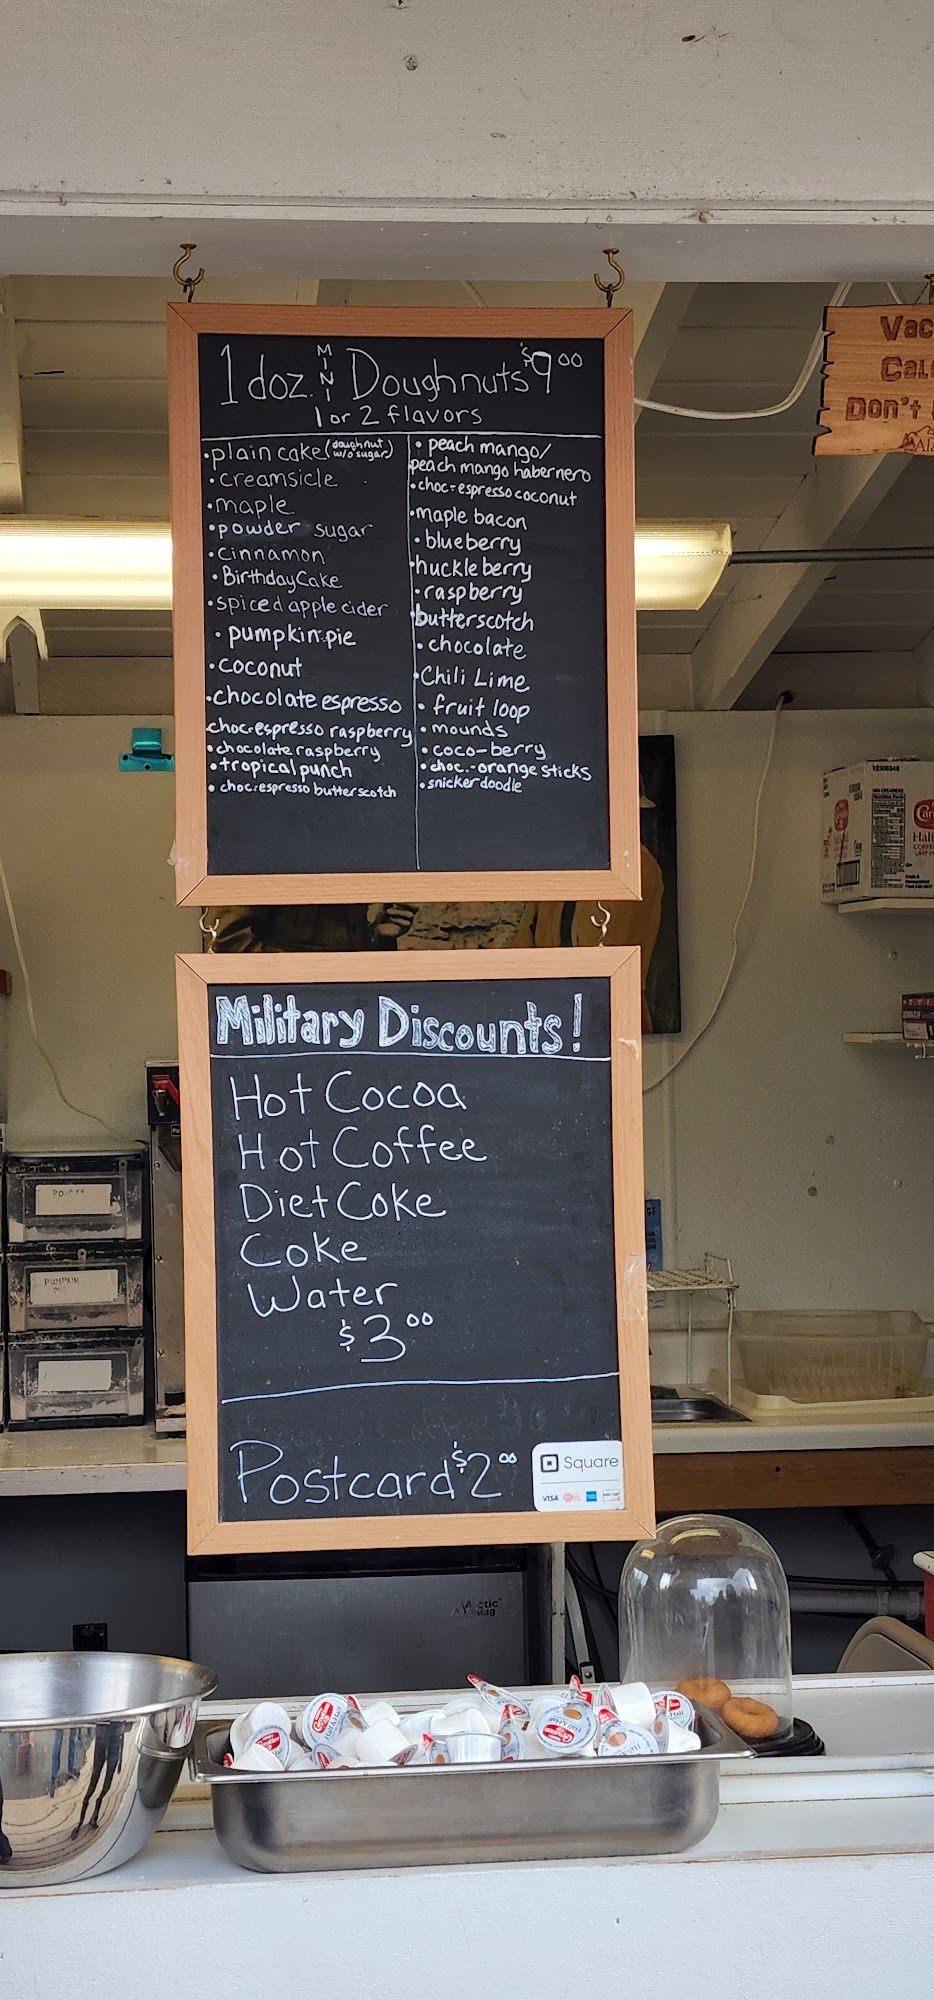 1 doz. MINI Doughnuts $9.00
1 or 2 flavors
• plain cake (doughnut w/o sugar)
• creamsicle
• maple
• powder sugar
• cinnamon
• Birthday Cake
• spiced apple cider
• pumpkin pie
• coconut
• chocolate espresso
choc-espresso raspberry
• chocolate raspberry
• tropical punch
• choc-espresso butterscotch
• peach mango/
peach mango habernero
• choc-espresso coconut
• maple bacon
• blueberry
• huckleberry
• raspberry
• butterscotch
• chocolate
• Chili Lime
• fruit loop
• mounds
• coco-berry
• choc.-orange sticks
• snickerdoodle
Vac
Cal
Don't
Military Discounts!
Hot Cocoa
Hot Coffee
Diet Coke
Coke
Water
$3.00
Postcard $2.00
Square
VISA
PUMPKIN
12306548
Half